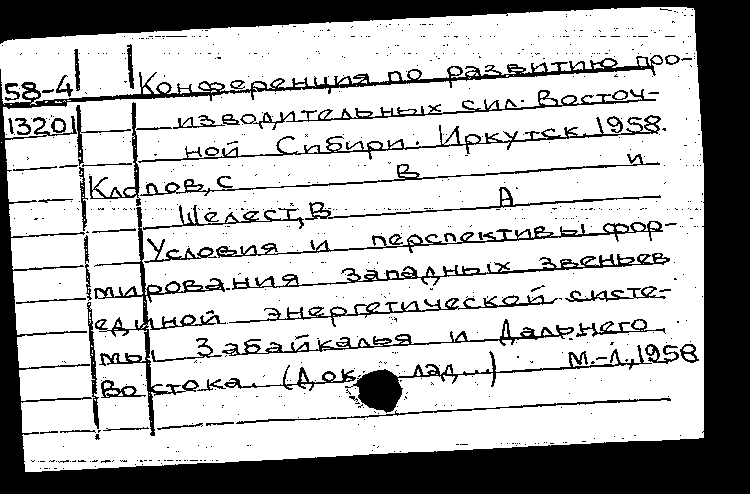 58-4 Конференция по развитию про-
13201 изводительных сил Восточ-
ной Сибири. Иркутск. 1958.
Клопов, С В и
Шелест, В А
Условия и перспективы фор-
мирования западных звеньев
единой энергетической систе-
мы Забайкалья и Дальнего
Востока. (Доклад...) М.-Л., 1958